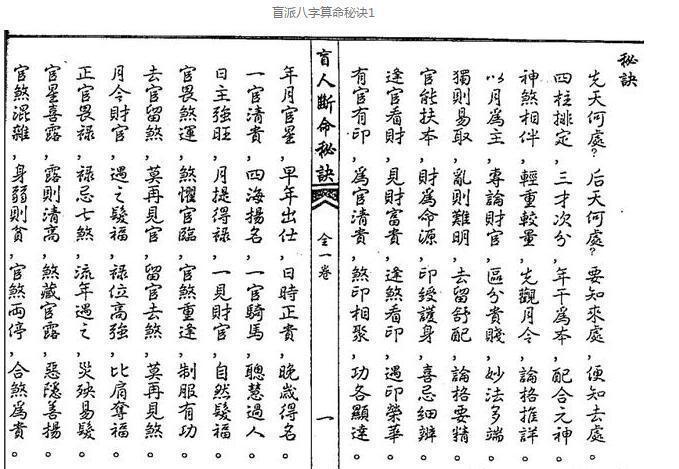 盲派八字算命秘诀1
秘訣
先天何處?后天何處?要知來處,便知去處。
四柱排定,三才次分,年干為本,配合元神。
神煞相伴,輕重較量,先觀月令,論格推詳。
以月為主,專論財官,區分貴賤,妙法多端。
獨則易取,亂則難明,去留舒配,論格要精。
官能扶本,財為命源,印綬護身,喜忌細辨。
逢官看財,見財富貴,逢煞看印,遇印榮華。
有官有印,為官清貴,煞印相聚,功各顯達。
盲人斷命秘訣
全一卷
一
年月官星,早年出仕,日時正貴,晚歲得名。
一官清貴,四海揚名,一官騎馬,聰慧過人。
日主強旺,月提得祿,一見財官,自然髮福。
官畏煞運,煞懼官臨,官煞重逢,制服有功。
去官留煞,莫再見官,留官去煞,莫再見煞。
月令財官,遇之髮福,祿位高強,比肩奪福。
正官畏祿,祿忌七煞,流年遇之,災殃易髮。
官星喜露,露則清高,煞藏官露,惡隱善揚。
官煞混雜,身弱則貧,官煞兩停,合煞為貴。